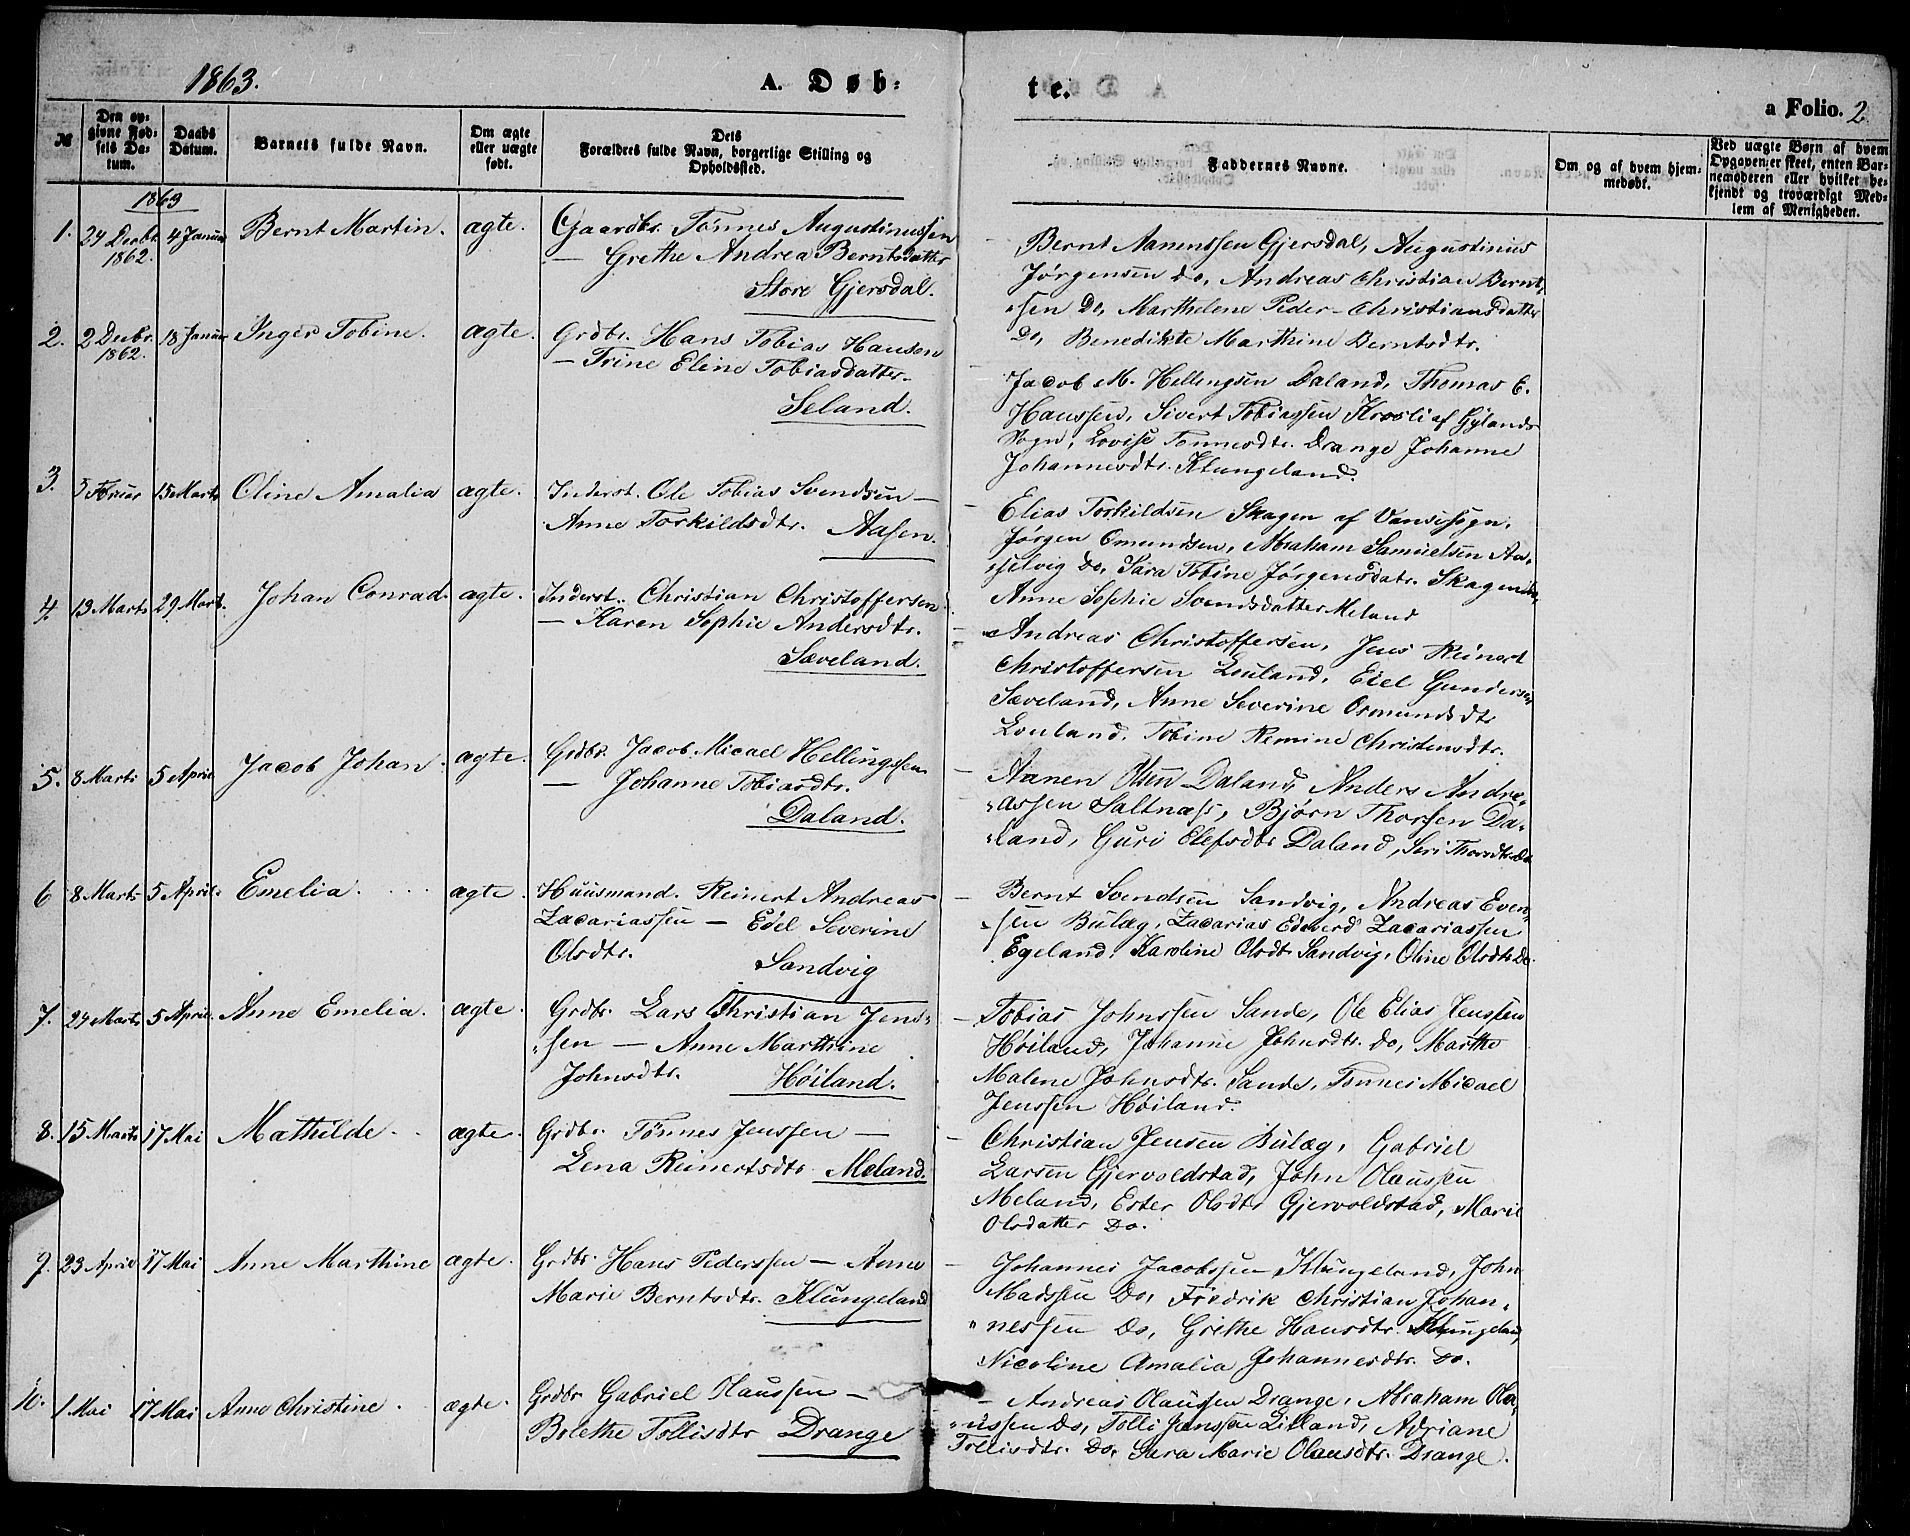 1863.
A. Døb=
te.
a Folio. 2
№
Den op=
givne Fød=
sels Da=
tum.
Daabs
Datum.
Barnets fulde Navn.
Om ægte
eller uægte
født.
Dets
Forældres fulde Navn, borgerlige Stilling og
Opholdssted.
Faddernes Navne.
Om og af hvem hjem=
medøbt.
Ved uægte Børn af hvem
Opgaven er skeet, enten Bar=
nemoderen eller hvilket be=
kjendt og troværdigt Med=
lem af Menigheden.
1863
1. 24 Decbr. 4 Januar Bernt Martin. ægte. Gaardbr. Tönnes Augustinussen
1862. — Grethe Andrea Berntsdatter
Store Gjersdal.
Bernt Aanenssen Gjersdal, Augustinius
Jörgensen do, Andreas Christian Bernt,
"sen Do, Marthelene Peder-Christiansdatter
Do, Benedikte Marthine Berntsdtr.
2. 2 Decbr. 18 Januar Inger Tobine. ægte. Grdbr. Hans Tobias Hansen
1862. — Trine Eline Tobiasdatter
Seland.
Jacob M. Hellingsen Daland, Thomas E.
Hanssen, Sivert Tobiassen Krosli af Gylands
Sogn, Lovise Tønnesdtr. Drange Johanne
Johannesdtr. Klungeland.
3. 3 Februar 15 Marts Oline Amalia ægte. Inderst. Ole Tobias Svendsen —
Anne Torkildsdtr. Aasen.
Elias Torkildsen Skagen af Vanse Sogn,
Jørgen Omundsen, Abraham Samuelsen Aa,
selvig do, Sara Tobine Jørgensdatr. Skagen
Anne Sophie Svendsdatter Meland
4. 13 Marts 29 Marts. Johan Conrad. ægte. Inderst. Christian Christoffersen
— Karen Sophie Andersdtr.
Sæveland.
Andreas Christoffersen, Jens Reinert
Christoffersen Louland, Eiel Gundersen
Sæveland, Anne Severine Osmundsdtr
Louland. Tobine Remine Christensdtr.
5. 8 Marts 5 April Jacob Johan. ægte. Grdbr. Jacob Micael Hellingsen
— Johanne Tobiasdtr.
Daland.
Aanen Olsen Daland, Anders Andre,
"assen Saltnæs, Bjørn Thorsen Da,
"land, Guri Olefsdtr Daland, Siri Thorsdtr Do
6 8 Marts 5 April. Emelia. ægte. Huusmand. Reinert Andreas
Zacariassen — Edel Severine
Olsdtr. Sandvig
Bernt Svendsen Sandvig, Andreas Even,
"sen Bülæg, Zacarias Edeverd Zacariassen
Egeland, Karoline Olsdtr Sandvig, Oline Olsdtr. Do.
7. 24 Marts 5 April. Anne Emelia. ægte. Grdbr. Lars Christian Jens,
"sen — Anne Marthine
Johnsdtr. Høiland.
Tobias Johnssen Sande, Ole Elias Jenssen
Høiland, Johanne Johnsdtr. do, Marthe
Malene Johnsdtr. Sande, Tønnes Micael
Jenssen Høiland.
8. 15 Marts 17 Mai Mathilde. ægte. Grdbr. Tönnes Jenssen —
Lena Reinertsdtr. Meland.
Christian Jensen Bülæg, Gabriel
Larsen Gjervoldstad, John Olaussen
Meland, Ester Olsdtr Gjervoldstad, Marie
Olsdatter Do.
9. 23 April 17 Mai Anne Marthine ægte. Grdbr. Hans Pederssen — Anne
Marie Berntsdtr. Klungeland
Johannes Jacobssen Klungeland, John
Madssen Do, Fredrik Christian Johan,
"nessen Do, Grethe Hansdtr. Klungeland
Nicoline Amalia Johannesdtr. Do.
10. 1 Mai 17 Mai Anne Christine. ægte. Grdbr Gabriel Olaussen —
Bolethe Tollisdtr Drange
Andreas Olaussen Drange, Abraham Ola,
"ussen Do, Tolli Jenssen Lilland, Adriane
Tollisdtr. Do, Sara Marie Olausdtr. Drange.